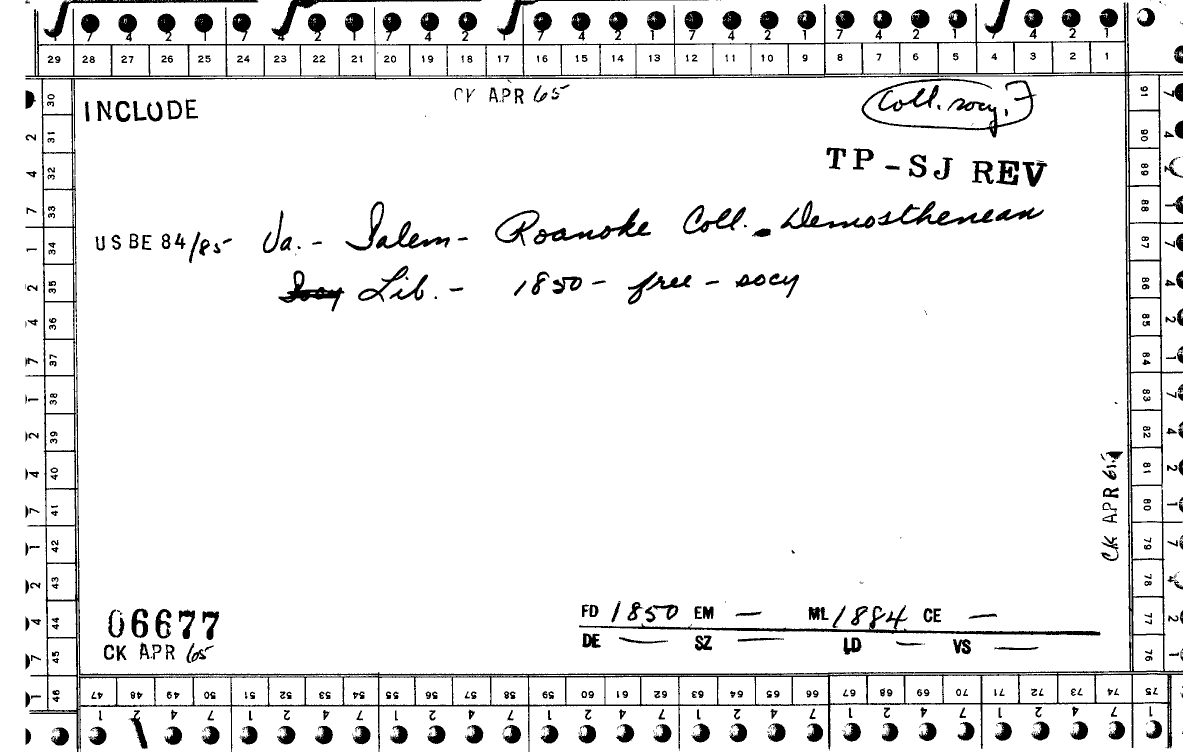 7 4 2 1 7 4 2 1 7 4 2 1 7 4 2 1 7 4 2 1 7 4 2 1 4 2 1
29 28 27 26 25 24 23 22 21 20 19 18 17 16 15 14 13 12 11 10 9 8 7 6 5 4 3 2 1
CK APR 65
INCLUDE
Coll. socy. F
TP-SJ REV
USBE 84/85 Va. - Salem - Roanoke Coll. Demosthenean
Socy Lib. - 1850 - free - socy
06677
CK APR 65
FD 1850 EM — ML 1884 CE —
DE — SZ — LD — VS —
CK APR 65
30 31 32 33 34 35 36 37 38 39 40 41 42 43 44 45 46
2 4 7 1 2 4 7 1 2 4 7 1 2 4 7 1
91 90 89 88 87 86 85 84 83 82 81 80 79 78 77 76 75
47 48 49 50 51 52 53 54 55 56 57 58 59 60 61 62 63 64 65 66 67 68 69 70 71 72 73 74
1 2 4 7 1 2 4 7 1 2 4 7 1 2 4 7 1 2 4 7 1 2 4 7 1 2 4 7 1